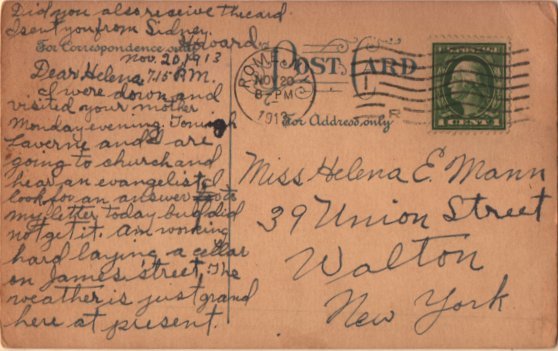 Did you also receive the card
I sent you from Sidney.
Edward.
For Correspondence only
Nov. 20, 1913
7:15 P.M.
Dear Helena,
I were down and
visited your mother
Monday evening. Tonight
Laverne and I are
going to church and
hear an evangelist. I
look for an answer to
my letter today but did
not get it. Am working
hard laying a cellar
on James street. The
weather is just grand
here at present.
POST CARD
For Address only
ROME
NOV 20
8-PM
1913
1 CENT 1
Miss Helena E. Mann
39 Union Street
Walton
New York